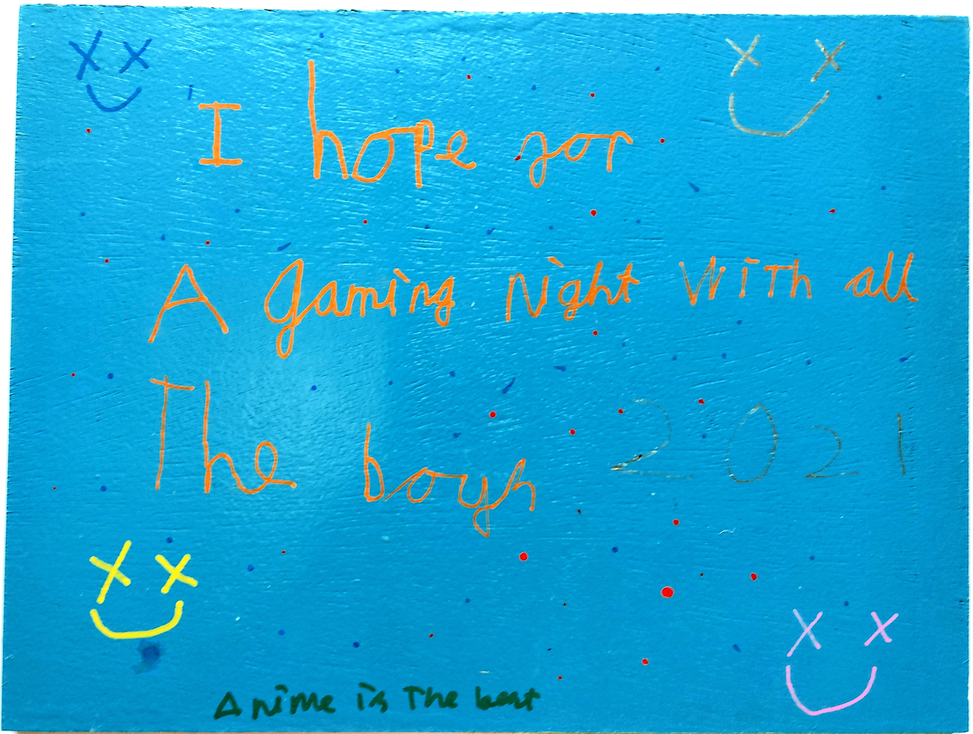 I hope for
A gaming Night With all
The boys 2021
Anime is The best